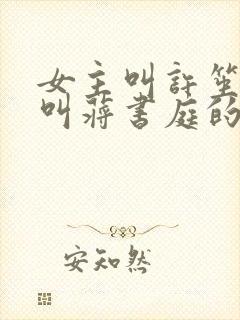 女主叫許笙
叫蔣書庭的
安知然